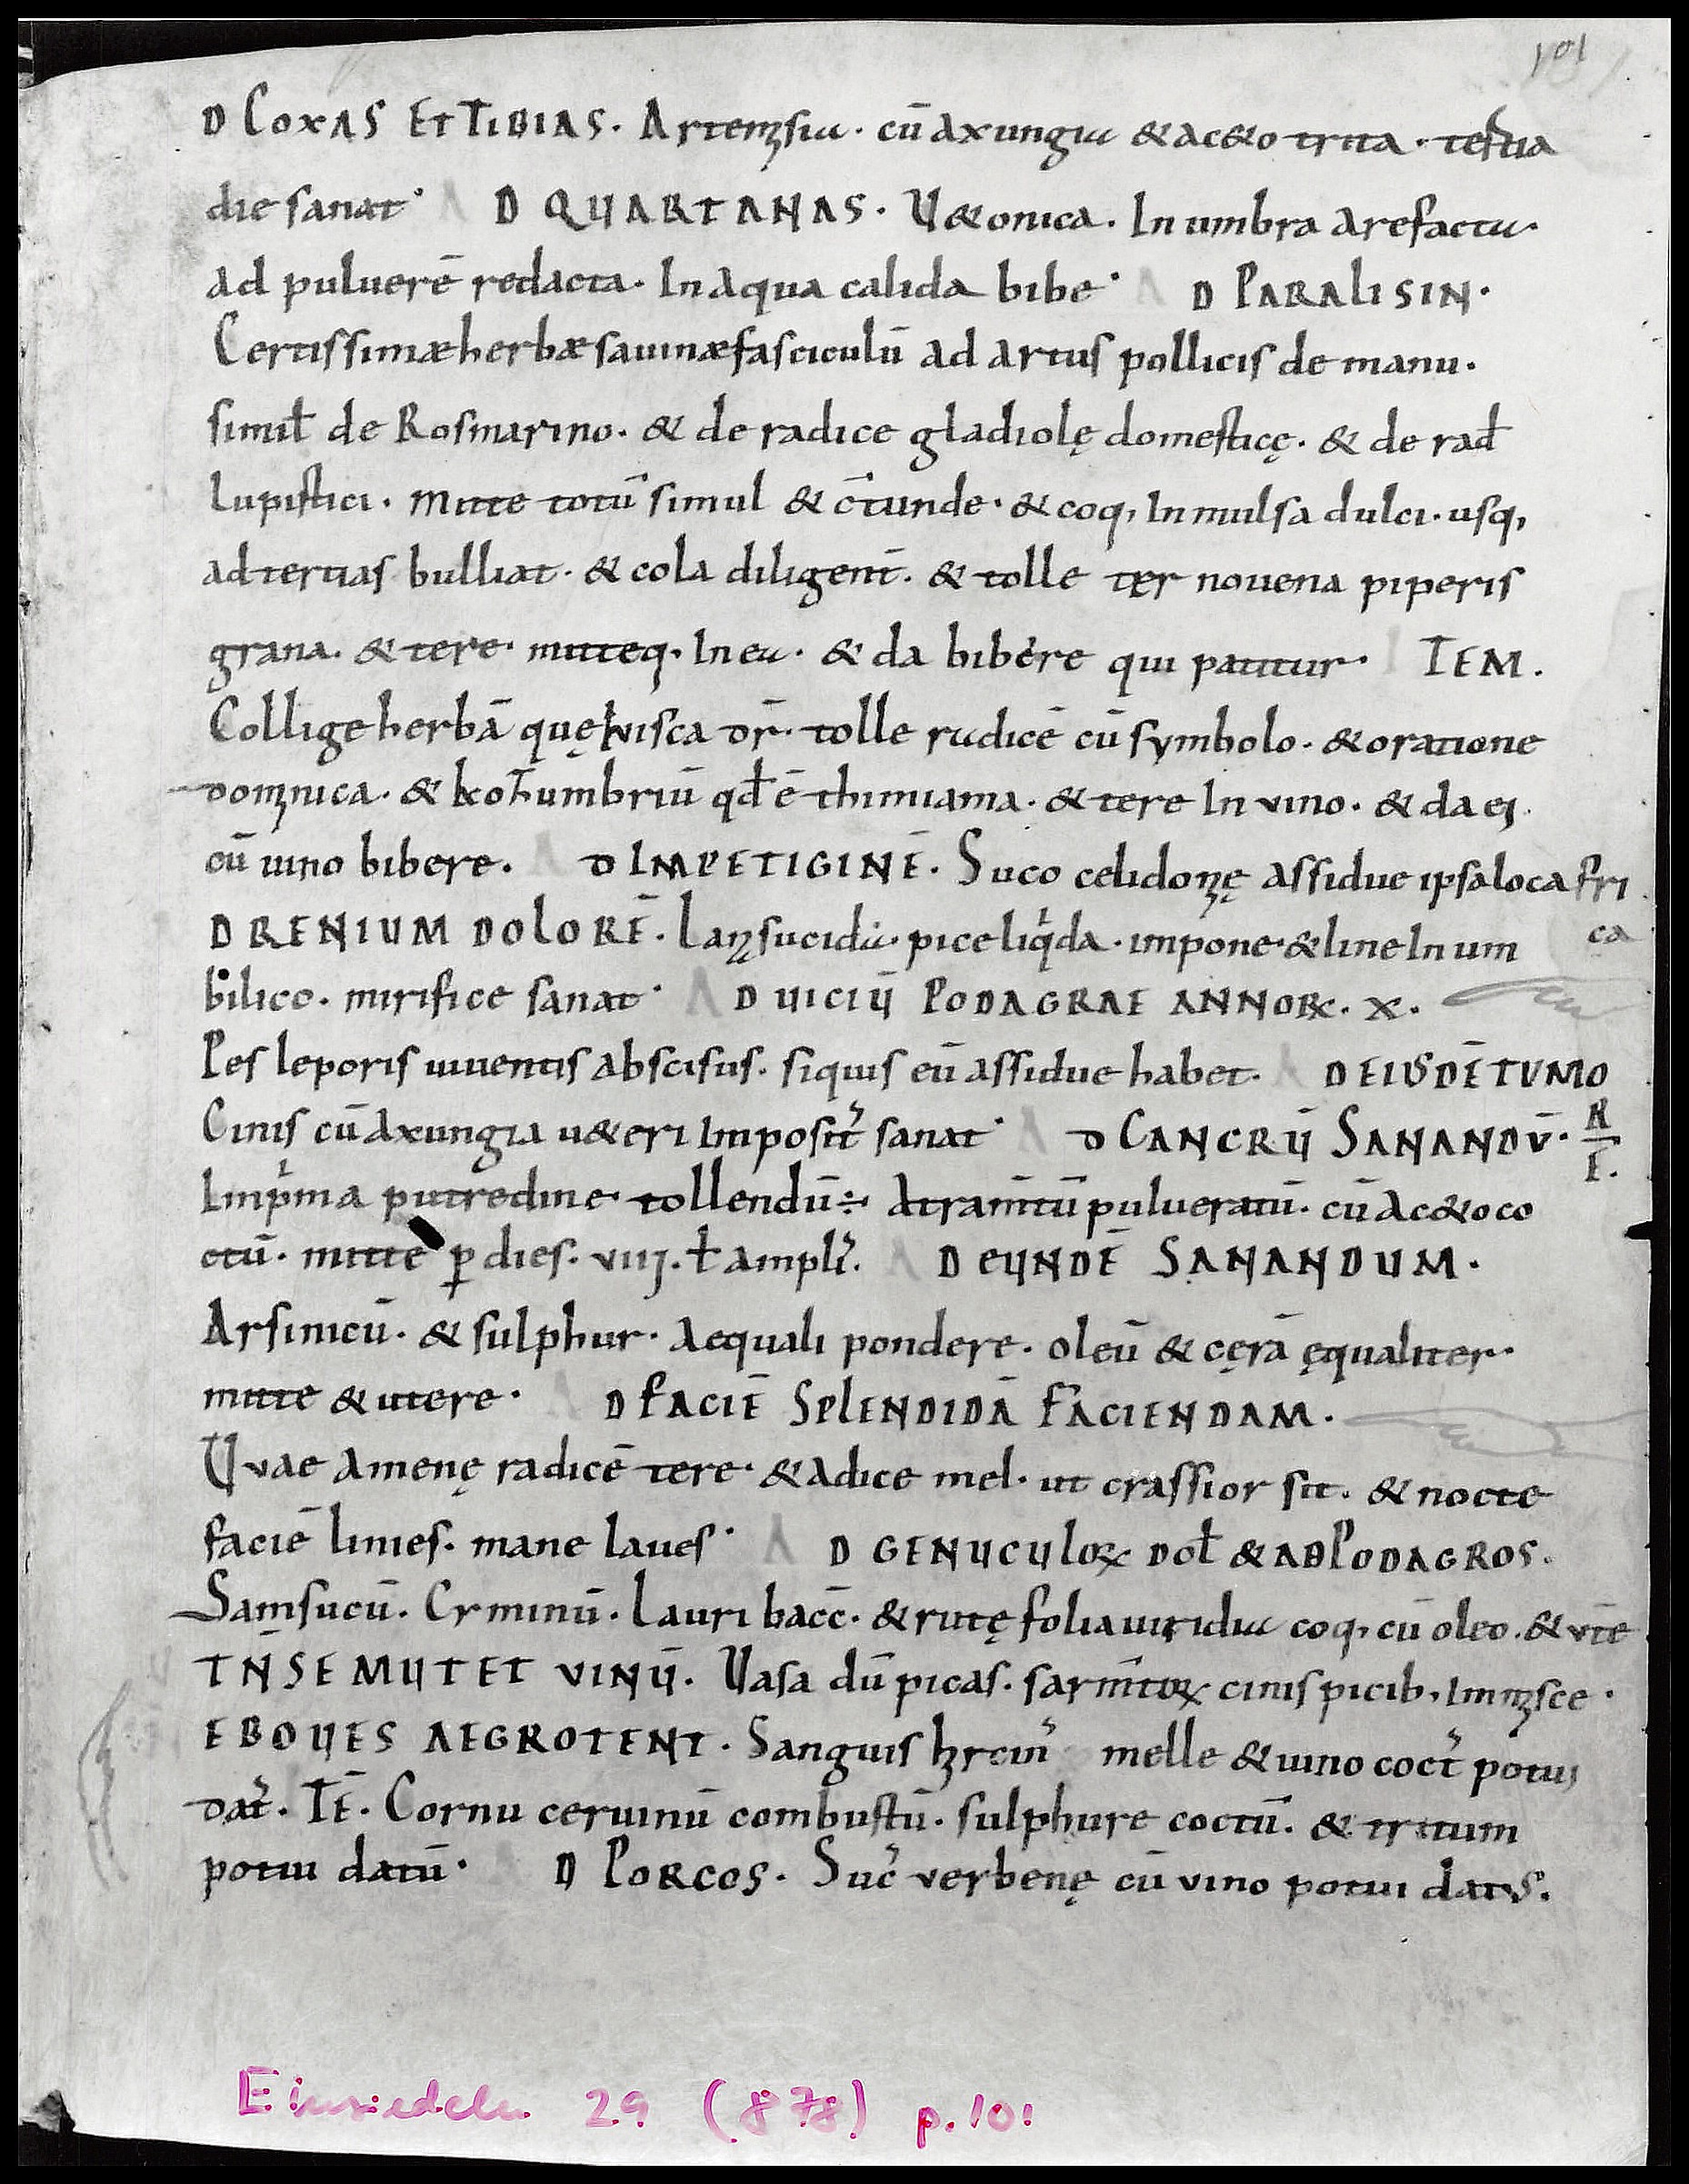 101
D COXAS ET TIBIAS. Artemisia. cū axungia & ac&o trita. tertia
die sanat. AD QUARTANAS. U&onica. In umbra arefacta.
ad puluerē redacta. In aqua calida bibe. AD PARALISIN.
Certissimæ herbæ sauinæ fasciculū ad artus pollicis de manu.
simiƚ de Rosmarino. & de radice gladiolę domesticę. & de rađ
Lupistici. Mitte totū simul & c̄tunde. & coq, In mulsa dulci. usq,
ad tertias bulliat. & cola diligent̄. & tolle ter nouena piperis
grana. & tere. mitteq. In ea. & da bibere qui patitur. ITEM.
Collige herbā quę hisca dr̄. tolle radicē cū symbolo. & oratione
dominica. & qđ ē thimiama. & tere In vino. & da ei
cū uino bibere. AD IMPETIGINĒ. Suco celidonię assidue ipsa loca fri
ca
D RENIUM DOLORĒ. Lani sucida. pice liqida. impone. & line In um
bilico. mirifice sanat. AD UICIŪ PODAGRAE ANNOꝜ. X.
Pes leporis uiuentis abscisus. siquis eū assidue habet. AD EIUSDĒ TUMO
RĒ.
Cinis cū axungia u&eri Imposit' sanat. AD CANCRŪ SANANDŪ.
Inprima putredine. tollendū ÷ Atram̄tū pulueratū. cū ac&o co
ctū. mitte ꝑ dies. viij. ƚ ampli'. AD EUNDĒ SANANDUM.
Arsinicū. & sulphur. aequali pondere. oleū & cęrā ęqualiter.
mitte & utere. AD FACIĒ SPLENDIDĀ FACIENDAM.
Uvae amenę radicē tere. & adice mel. ut crassior sit. & nocte
faciē linies. mane laues. AD GENUCULOꝜ DOƚ & AD PODAGROS.
Samsucū. Cyminū. Lauri bacc̄. & rutę folia uiridia coq, cū oleo. & vt̄e
T N̄ SE MUTET VINŪ. Uasa dū picas. sarm̄toꝝ cinis picib, Immisce.
E BOUES AEGROTENT. Sanguis hircin' melle & uino coct' potui
dat'. IT̄Ē. Cornu ceruinū combustū. sulphure coctū. & tritum
potui datū. AD PORCOS. Suc' verbenę cū vino potui datus.
Einsiedeln 29 (878) p. 101